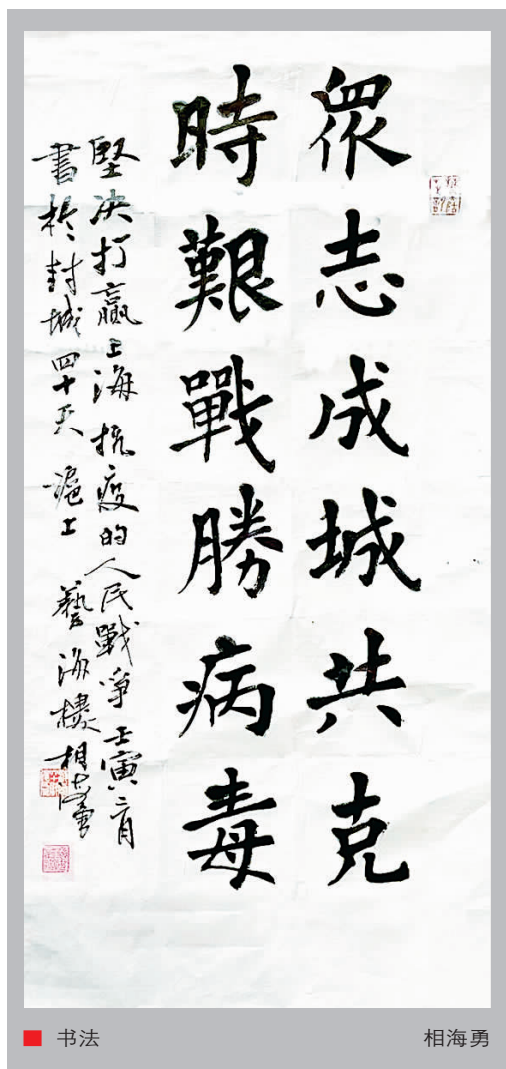 眾志成城共克
時艱戰勝病毒
堅决打贏上海抗疫的人民戰爭壬寅二月
書於封城四十天滬上藝海樓相海勇
书法
相海勇